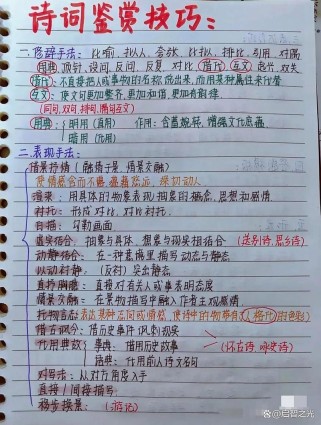 诗词鉴赏技巧:
一.修辞手法: 比喻.拟人.夸张.比拟.排比.引用.对偶
用典.顶针.设问.反问.反复.对比.借代.互文.起兴.双关
借代: 不直接把人或事物的名称说出来,而用某种属性来代替
互文: 使文句更加整齐,更加和谐,更加有韵律
(同句,对句,排句,隔句互文)
用典: 明用(直用) 作用: 含蓄婉转,增强文化底蕴
暗用(化用)
二.表现手法:
借景抒情(融情于景,情景交融)
使情感含而不露,蕴藉悠远,绿切动人.
渲染: 用具体的物象表现抽象的概念,思想和感情
衬托: 形成对比,对比衬托
白描: 勾勒画面
虚实结合: 抽象与具体,想象与现实相结合 (送别诗,思乡诗)
动静结合: 在一种意境里描写动态与静态
以动衬静: (反衬)突出静态
直抒胸臆: 直接对有关人或事表明态度
情景交融: 在景物描写中融入作者主观感情
托物言志: 表达某种志向或情感,使诗中的物带有人(格化)的色彩
借古讽今: 借历史事件讽刺现实
化用典故: 事典: 借用历史故事 (怀古诗,咏史诗)
语典: 化用前人诗文名句
对写法: 从对方角度入手
直接/间接描写:
移步换景: (游记)
@启智之光